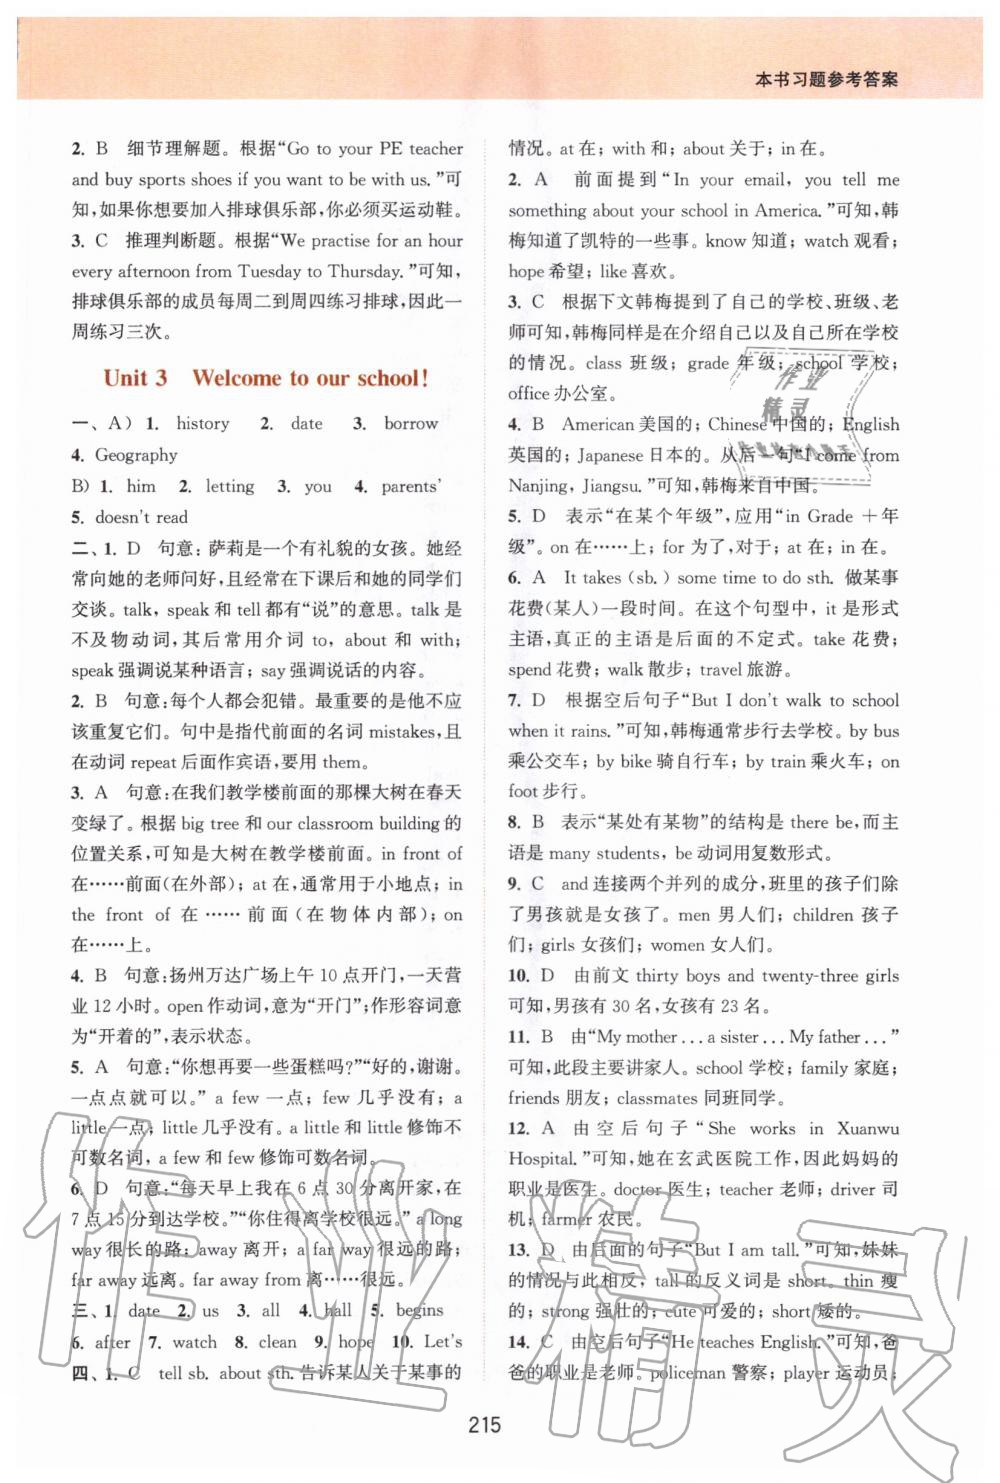 本书习题参考答案
2. B 细节理解题。根据“Go to your PE teacher
and buy sports shoes if you want to be with us.”可
知,如果你想要加入排球俱乐部,你必须买运动鞋。
3. C 推理判断题。根据“We practise for an hour
every afternoon from Tuesday to Thursday.”可知,
排球俱乐部的成员每周二到周四练习排球,因此一
周练习三次。
Unit 3 Welcome to our school!
一、A) 1. history 2. date 3. borrow
4. Geography
B) 1. him 2. letting 3. you 4. parents'
5. doesn't read
二、1. D 句意:萨莉是一个有礼貌的女孩。她经
常向她的老师问好,且经常在下课后和她的同学们
交谈。talk, speak 和 tell 都有“说”的意思。talk 是
不及物动词,其后常用介词 to, about 和 with;
speak 强调说某种语言; say 强调说话的内容。
2. B 句意:每个人都会犯错。最重要的是他不应
该重复它们。句中是指代前面的名词 mistakes,且
在动词 repeat 后面作宾语,要用 them。
3. A 句意:在我们教学楼前面的那棵大树在春天
变绿了。根据 big tree 和 our classroom building 的
位置关系,可知是大树在教学楼前面。in front of
在……前面(在外部); at 在,通常用于小地点; in
the front of 在……前面(在物体内部); on
在……上。
4. B 句意:扬州万达广场上午 10 点开门,一天营
业 12 小时。open 作动词,意为“开门”;作形容词意
为“开着的”,表示状态。
5. A 句意:“你想再要一些蛋糕吗?”“好的,谢谢。
一点点就可以。” a few 一点; few 几乎没有; a
little 一点; little 几乎没有。a little 和 little 修饰不
可数名词, a few 和 few 修饰可数名词。
6. D 句意:“每天早上我在 6 点 30 分离开家,在
7 点 15 分到达学校。”“你住得离学校很远。” a long
way 很长的路; away 离开; a far way 很远的路;
far away 远离。far away from 离……很远。
三、1. date 2. us 3. all 4. hall 5. begins
6. after 7. watch 8. clean 9. hope 10. Let's
四、1. C tell sb. about sth. 告诉某人关于某事的
情况。at 在; with 和; about 关于; in 在。
2. A 前面提到“In your email, you tell me
something about your school in America.”可知,韩
梅知道了凯特的一些事。know 知道; watch 观看;
hope 希望; like 喜欢。
3. C 根据下文韩梅提到了自己的学校、班级、老
师可知,韩梅同样是在介绍自己以及自己所在学校
的情况。class 班级; grade 年级; school 学校;
office 办公室。
4. B American 美国的; Chinese 中国的; English
英国的; Japanese 日本的。从后一句“I come from
Nanjing, Jiangsu.”可知,韩梅来自中国。
5. D 表示“在某个年级”,应用“in Grade +年
级”。on 在……上; for 为了,对于; at 在; in 在。
6. A It takes (sb.) some time to do sth. 做某事
花费(某人)一段时间。在这个句型中, it 是形式
主语,真正的主语是后面的不定式。take 花费;
spend 花费; walk 散步; travel 旅游。
7. D 根据空后句子“But I don't walk to school
when it rains.”可知,韩梅通常步行去学校。by bus
乘公交车; by bike 骑自行车; by train 乘火车; on
foot 步行。
8. B 表示“某处有某物”的结构是 there be,而主
语是 many students, be 动词用复数形式。
9. C and 连接两个并列的成分,班里的孩子们除
了男孩就是女孩了。men 男人们; children 孩子
们; girls 女孩们; women 女人们。
10. D 由前文 thirty boys and twenty-three girls
可知,男孩有 30 名,女孩有 23 名。
11. B 由“My mother ... a sister ... My father ...”
可知,此段主要讲家人。school 学校; family 家庭;
friends 朋友; classmates 同班同学。
12. A 由空后句子“She works in Xuanwu
Hospital.”可知,她在玄武医院工作,因此妈妈的
职业是医生。doctor 医生; teacher 老师; driver 司
机; farmer 农民。
13. D 由后面的句子“But I am tall.”可知,妹妹
的情况与此相反, tall 的反义词是 short。thin 瘦
的; strong 强壮的; cute 可爱的; short 矮的。
14. C 由空后句子“He teaches English.”可知,爸
爸的职业是老师。policeman 警察; player 运动员;
215
作业
精灵
作业精灵